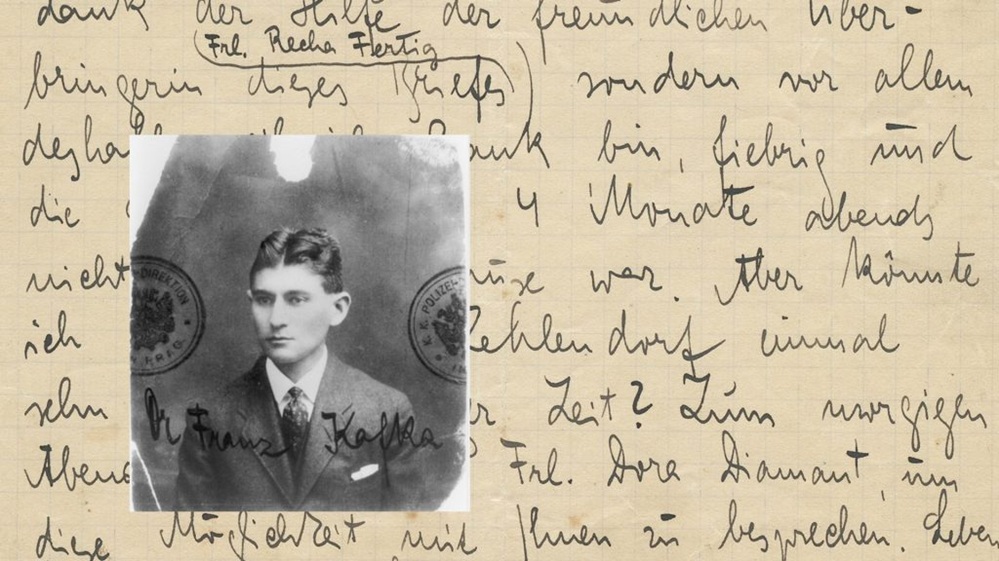 dank der Hilfe der freundlichen Über-
(Frl. Recha Fertig)
bringerin dieses Briefes) sondern vor allem
bin, fiebrig und
die 4 Monate abends
nicht war. Aber könnte
ich Zehlendorf einmal
sehn Zeit? Zum morgigen
Frl. Dora Diamant, um
diese Möglichkeit mit Ihnen zu besprechen. Leben
DIREKTION
PRAG
K. K. POLIZEI
Dr Franz Kafka